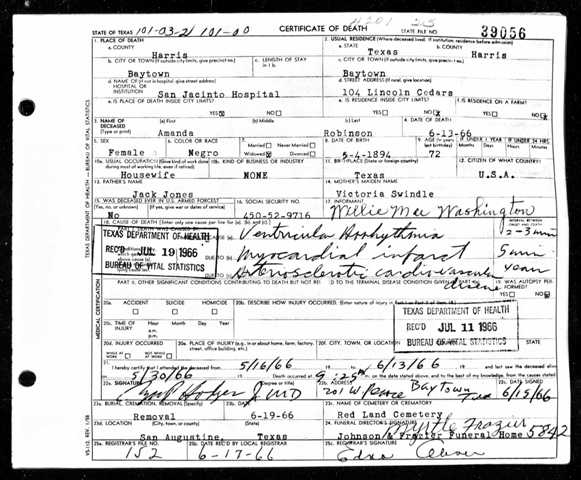 STATE OF TEXAS 101-03-21 101-00 CERTIFICATE OF DEATH STATE FILE NO. 39056
1. PLACE OF DEATH 2. USUAL RESIDENCE (Where deceased lived. If institution: residence before admission)
a. COUNTY Harris a. STATE Texas b. COUNTY Harris
b. CITY OR TOWN (If outside city limits, give precinct no.) c. LENGTH OF STAY in 1b c. CITY OR TOWN (If outside city limits, give precinct no.)
Baytown Baytown
d. NAME OF (If not in hospital, give street address) HOSPITAL OR INSTITUTION d. STREET ADDRESS (If rural, give location)
San Jacinto Hospital 104 Lincoln Cedars
e. IS PLACE OF DEATH INSIDE CITY LIMITS? e. IS RESIDENCE INSIDE CITY LIMITS? f. IS RESIDENCE ON A FARM?
YES NO YES NO YES NO
3. NAME OF DECEASED (Type or print) (a) First (b) Middle (c) Last 4. DATE OF DEATH
Amanda Robinson 6-13-66
5. SEX 6. COLOR OR RACE 7. Married Never Married 8. DATE OF BIRTH 9. AGE (In years last birthday) IF UNDER 1 YEAR IF UNDER 24 HRS.
Female Negro Widowed Divorced 5-4-1894 72
10a. USUAL OCCUPATION (Give kind of work done 10b. KIND OF BUSINESS OR INDUSTRY 11. BIRTHPLACE (State or foreign country) 12. CITIZEN OF WHAT COUNTRY?
Housewife NONE Texas U.S.A.
13. FATHER'S NAME 14. MOTHER'S MAIDEN NAME
Jack Jones Victoria Swindle
15. WAS DECEASED EVER IN U.S. ARMED FORCES? 16. SOCIAL SECURITY NO. 17. INFORMANT
No 450-52-9716 Willie Mae Washington
18. CAUSE OF DEATH (Enter only one cause per line for INTERVAL BETWEEN ONSET AND DEATH
TEXAS DEPARTMENT OF HEALTH
REC'D JUL 19 1966
BUREAU OF VITAL STATISTICS
Ventricular 2-3 min
Myocardial infarct 5 min
Arteriosclerotic cardiovascular disease years
PART II. OTHER SIGNIFICANT CONDITIONS CONTRIBUTING TO DEATH BUT NOT TO THE TERMINAL DISEASE CONDITION 19. WAS AUTOPSY PERFORMED?
YES NO
20a. ACCIDENT SUICIDE HOMICIDE 20b. DESCRIBE HOW INJURY OCCURRED.
TEXAS DEPARTMENT OF HEALTH
REC'D JUL 11 1966
BUREAU OF VITAL STATISTICS
20c. TIME OF INJURY Hour Month Day Year
a.m.
p.m.
20d. INJURY OCCURRED 20e. PLACE OF INJURY (e.g., in or about home, farm, factory, street, office building, etc.) 20f. CITY, TOWN, OR LOCATION
WHILE AT WORK NOT WHILE AT WORK
I hereby certify that I attended the deceased from 5/16/66 6/13/66
5/30/66 Death occurred on the date stated above, and to the best of my knowledge, from the causes stated
22a. SIGNATURE (Degree or title) 22b. ADDRESS 22c. DATE SIGNED
M D Baytown 6/15/66
23a. BURIAL, CREMATION, REMOVAL (Specify) 23b. DATE 23c. NAME OF CEMETERY OR CREMATORY
Removal 6-19-66 Red Land Cemetery
23d. LOCATION (City, town, or county) (State) 24. FUNERAL DIRECTOR'S SIGNATURE
San Augustine, Texas Johnson & Frazier Funeral Home Myrtle Frazier 5842
25a. REGISTRAR'S FILE NO. 25b. DATE REC'D BY LOCAL REGISTRAR 25c. REGISTRAR'S SIGNATURE
152 6-17-66 Edna Oliver
TEXAS DEPARTMENT OF HEALTH—BUREAU OF VITAL STATISTICS
MEDICAL CERTIFICATION
VS-112 REV. 1/58